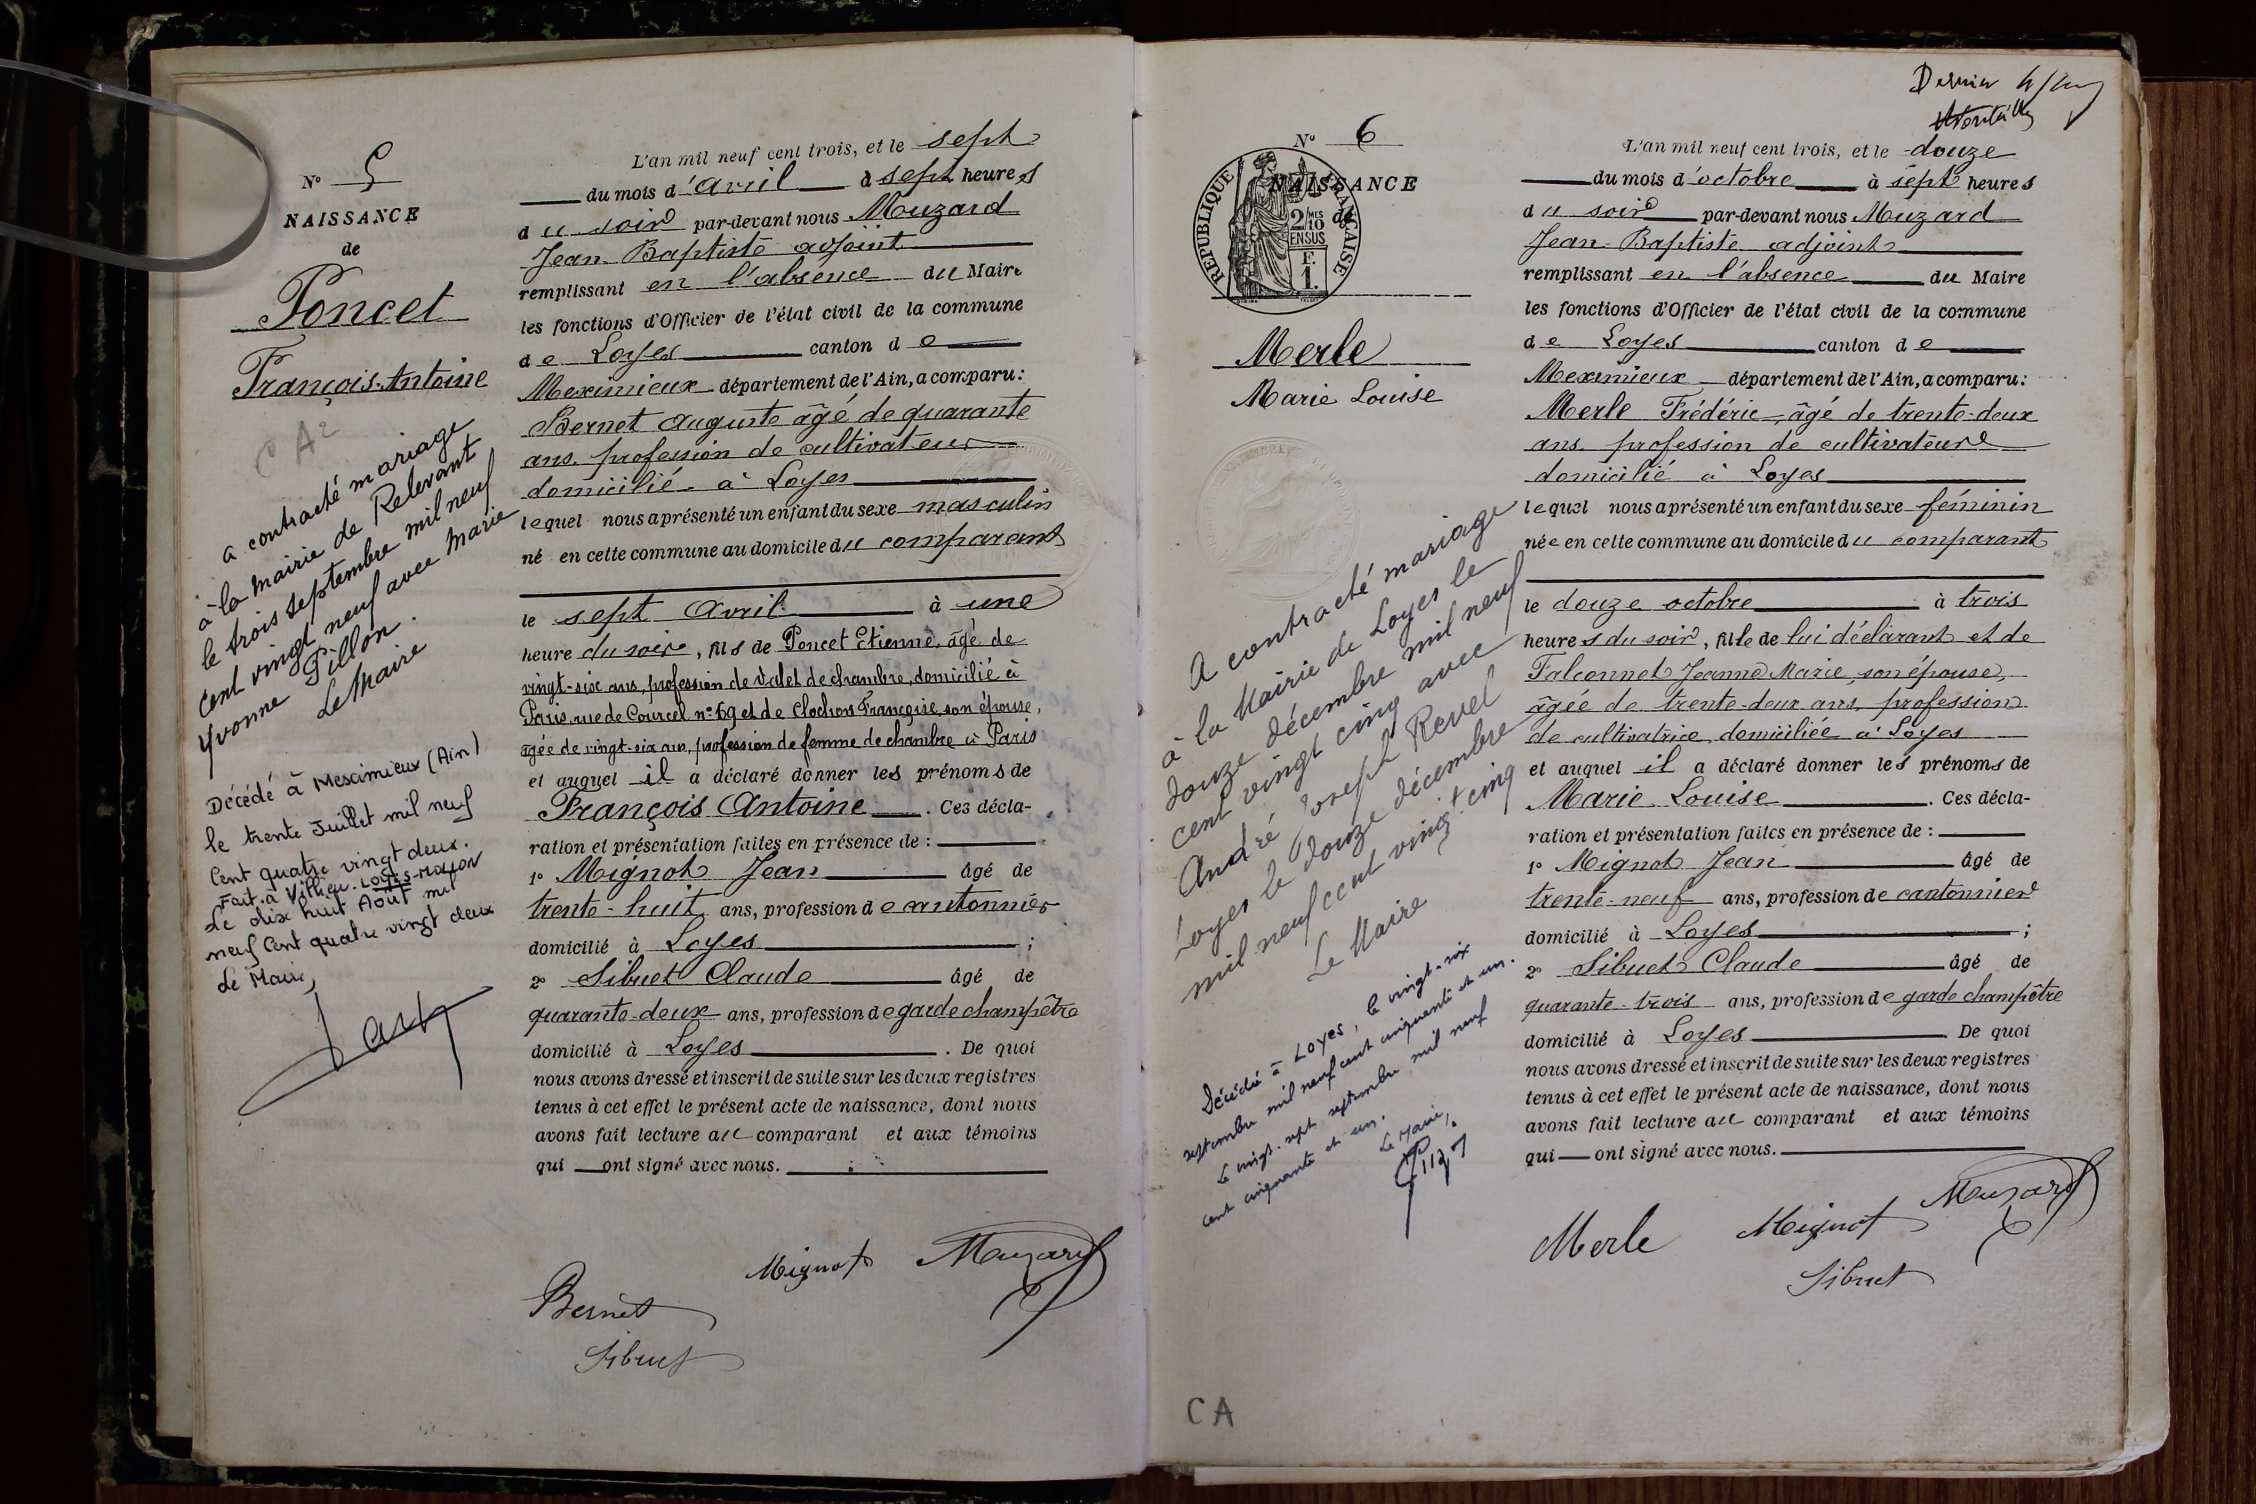 N° 5
NAISSANCE
de
Poncet
François-Antoine
CA2
a contracté mariage
à la mairie de Relevant
le trois septembre mil neuf
cent vingt neuf avec Marie
Yvonne Pillon.
Le Maire
Décédé à Meximieux (Ain)
le trente Juillet mil neuf
Cent quatre vingt deux.
Fait à Villieu-LOYES-MOLLON
Le dix huit Août mil
neuf Cent quatre vingt deux
Le Maire,
L'an mil neuf cent trois, et le sept
du mois d'avril à sept heures
du soir par-devant nous Muzard
Jean-Baptiste adjoint
remplissant en l'absence du Maire
les fonctions d'Officier de l'état civil de la commune
de Loyes canton de
Meximieux département de l'Ain, a comparu:
Bernet Auguste âgé de quarante
ans, profession de cultivateur
domicilié à Loyes
lequel nous a présenté un enfant du sexe masculin
né en cette commune au domicile du comparant
le sept avril à une
heure du soir, fils de Poncet Etienne, âgé de
vingt-six ans, profession de valet de chambre, domicilié à
Paris, rue de Courcel n° 69 et de Clochon Françoise, son épouse,
âgée de vingt-six ans, profession de femme de chambre à Paris
et auquel il a déclaré donner les prénoms de
François Antoine. Ces décla-
ration et présentation faites en présence de :
1° Mignot Jean âgé de
trente-huit ans, profession de cantonnier
domicilié à Loyes ;
2° Sibuet Claude âgé de
quarante-deux ans, profession de garde champêtre
domicilié à Loyes. De quoi
nous avons dressé et inscrit de suite sur les deux registres
tenus à cet effet le présent acte de naissance, dont nous
avons fait lecture au comparant et aux témoins
qui ont signé avec nous.
Bernet Mignot Muzard
Sibuet
Dernier
N° 6
NAISSANCE
de
RÉPUBLIQUE FRANÇAISE
2/10 MES
EN SUS
F.
1.
Merle
Marie Louise
A contracté mariage
à la Mairie de Loyes le
douze décembre mil neuf
cent vingt cinq avec
André Joseph Revel
Loyes le douze décembre
mil neuf cent vingt cinq
Le Maire
Décédée à Loyes, le vingt-six
septembre mil neuf cent cinquante et un.
Le vingt-sept septembre mil neuf
cent cinquante et un.
Le Maire,
CA
L'an mil neuf cent trois, et le douze
du mois d'octobre à sept heures
du soir par-devant nous Muzard
Jean-Baptiste adjoint
remplissant en l'absence du Maire
les fonctions d'Officier de l'état civil de la commune
de Loyes canton de
Meximieux département de l'Ain, a comparu:
Merle Frédéric, âgé de trente-deux
ans, profession de cultivateur
domicilié à Loyes
lequel nous a présenté un enfant du sexe féminin
née en cette commune au domicile du comparant
le douze octobre à trois
heures du soir, fille de lui déclarant et de
Falconnet Jeanne Marie, son épouse,
âgée de trente-deux ans, profession
de cultivatrice, domiciliée à Loyes
et auquel il a déclaré donner les prénoms de
Marie Louise. Ces décla-
ration et présentation faites en présence de :
1° Mignot Jean âgé de
trente-neuf ans, profession de cantonnier
domicilié à Loyes ;
2° Sibuet Claude âgé de
quarante-trois ans, profession de garde champêtre
domicilié à Loyes De quoi
nous avons dressé et inscrit de suite sur les deux registres
tenus à cet effet le présent acte de naissance, dont nous
avons fait lecture au comparant et aux témoins
qui ont signé avec nous.
Merle Mignot Muzard
Sibuet